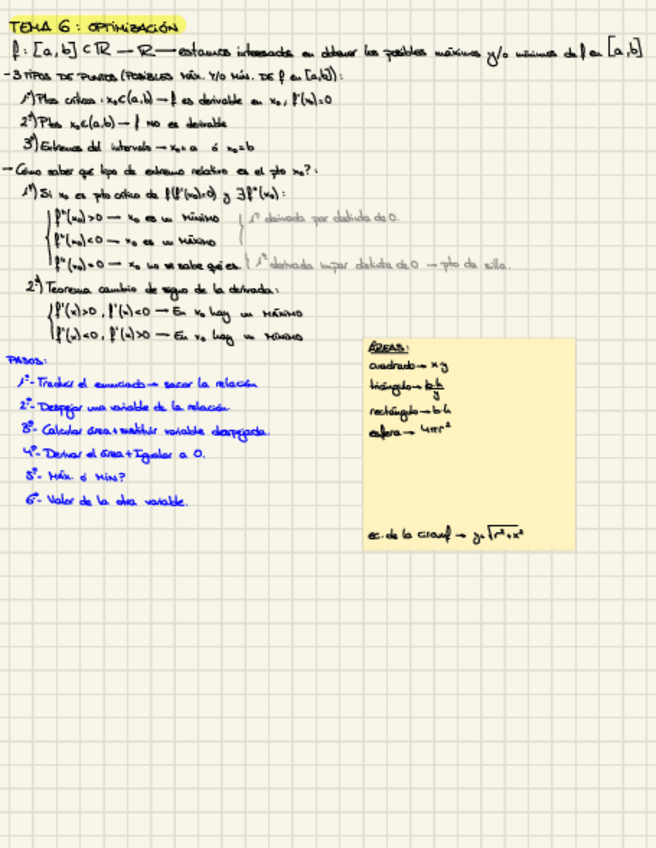 TEMA 6: OPTIMIZACIÓN
f: [a,b] ⊂ ℝ → ℝ → estamos interesados en obtener los posibles máximos y/o mínimos de f en [a,b]
- 3 TIPOS DE PUNTOS (POSIBLES MÁX. Y/O MÍN. DE f en [a,b]):
1º) Ptos críticos: x₀∈(a,b) → f es derivable en x₀, f'(x₀)=0
2º) Ptos x₀∈(a,b) → f NO es derivable
3º) Extremos del intervalo → x₀=a ó x₀=b
- Cómo saber que tipo de extremo relativo es el pto x₀?:
1º) Si x₀ es pto crítico de f (f'(x₀)=0) y ∃f''(x₀):
f''(x₀)>0 → x₀ es un MÍNIMO { 1ª derivada par distinta de 0.
f''(x₀)<0 → x₀ es un MÁXIMO
f''(x₀)=0 → x₀ no se sabe qué es. { 1ª derivada impar distinta de 0 → pto de silla.
2º) Teorema cambio de signo de la derivada:
f'(x)>0, f'(x)<0 → En x₀ hay un MÁXIMO
f'(x)<0, f'(x)>0 → En x₀ hay un MÍNIMO
PASOS:
1º- Traducir el enunciado → sacar la relación
2º- Despejar una variable de la relación.
3º- Calcular área + sustituir variable despejada.
4º- Derivar el área + Igualar a 0.
5º- MÁX. ó MÍN?
6º- Valor de la otra variable.
ÁREAS:
cuadrado → x·y
triángulo → b·h/y
rectángulo → b·h
esfera → 4πr²
ec. de la circunf → y=√r²+x²